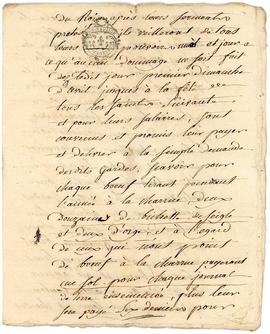 Du Roi, après leurs serments
ils veilleront de tous
leurs pouvoirs nuit et jour a
ce qu'aucun dommage ne soit fait
des ledit jour premier dimanche
d'avril jusques a la fête
tous les saints suivante
et pour leurs salaires, sont
convenus et promis leur payer
et délivrer a la simple demande
des dits gardes, scavoir pour
chaque bœuf tirant pendant
l'année a la charrue, deux
douzaine de bichets de seigle
et deux d'orge, et a l'Egard
de ceux qui n'ont point
de bœuf a la charrue payeront
un sol pour chaque journal
de terre ensemencée, plus leur
sera payé six deniers pour